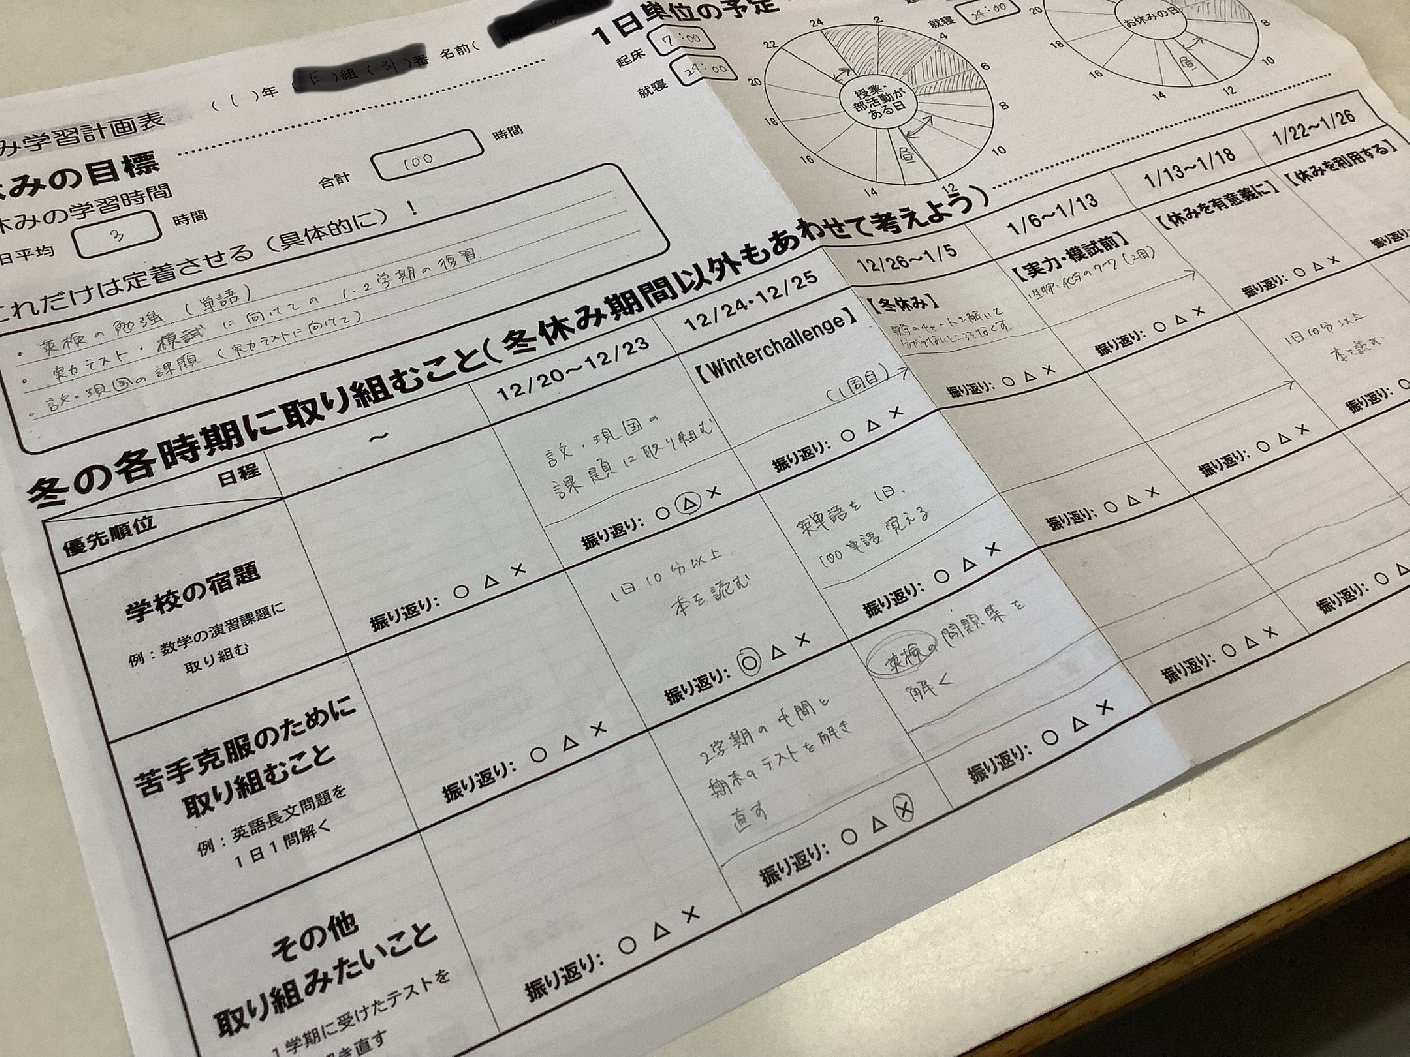 み学習計画表
( 1 )年
)組(
)番
名前(
休みの目標
休みの学習時間
日平均
3
時間
合計
100
時間
これだけは定着させる(具体的に)!
・英検の勉強(単語)
・実力テスト・模試に向けての1、2学期の復習
・言文・現国の課題(実力テストに向けて)
1日単位の予定
起床
7:00
就寝
24:00
授業・
部活動が
ある日
昼
24
2
4
6
8
10
12
14
16
18
20
22
就寝
24:00
お休みの日
昼
8
10
12
14
16
18
20
冬の各時期に取り組むこと(冬休み期間以外もあわせて考えよう)
日程
優先順位
~
12/20~12/23
12/24・12/25
12/26~1/5
1/6~1/13
1/13~1/18
1/22~1/26
【Winterchallenge】
【冬休み】
【実力・模試前】
【休みを有意義に】
【休みを利用する】
学校の宿題
例:数学の演習課題に
取り組む
振り返り: ○ △ ×
言文・現国の
課題に取り組む
振り返り: ○ △ ×
(1周目)
振り返り: ○ △ ×
振り返り: ○ △ ×
生物・化学のワーク(2周)
振り返り: ○ △ ×
振り返り: ○ △ ×
振り返り
苦手克服のために
取り組むこと
例:英語長文問題を
1日1問解く
振り返り: ○ △ ×
1日10分以上
本を読む
振り返り: ○ △ ×
英単語を1日、
100単語覚える
振り返り: ○ △ ×
振り返り: ○ △ ×
振り返り: ○ △ ×
1日10分以上
本を読む
振り返り: ○
その他
取り組みたいこと
1学期に受けたテストを
解き直す
振り返り: ○ △ ×
2学期の中間と
期末のテストを解き
直す
振り返り: ○ △ ×
英検の問題集を
解く
振り返り: ○ △ ×
振り返り: ○ △ ×
振り返り: ○ △